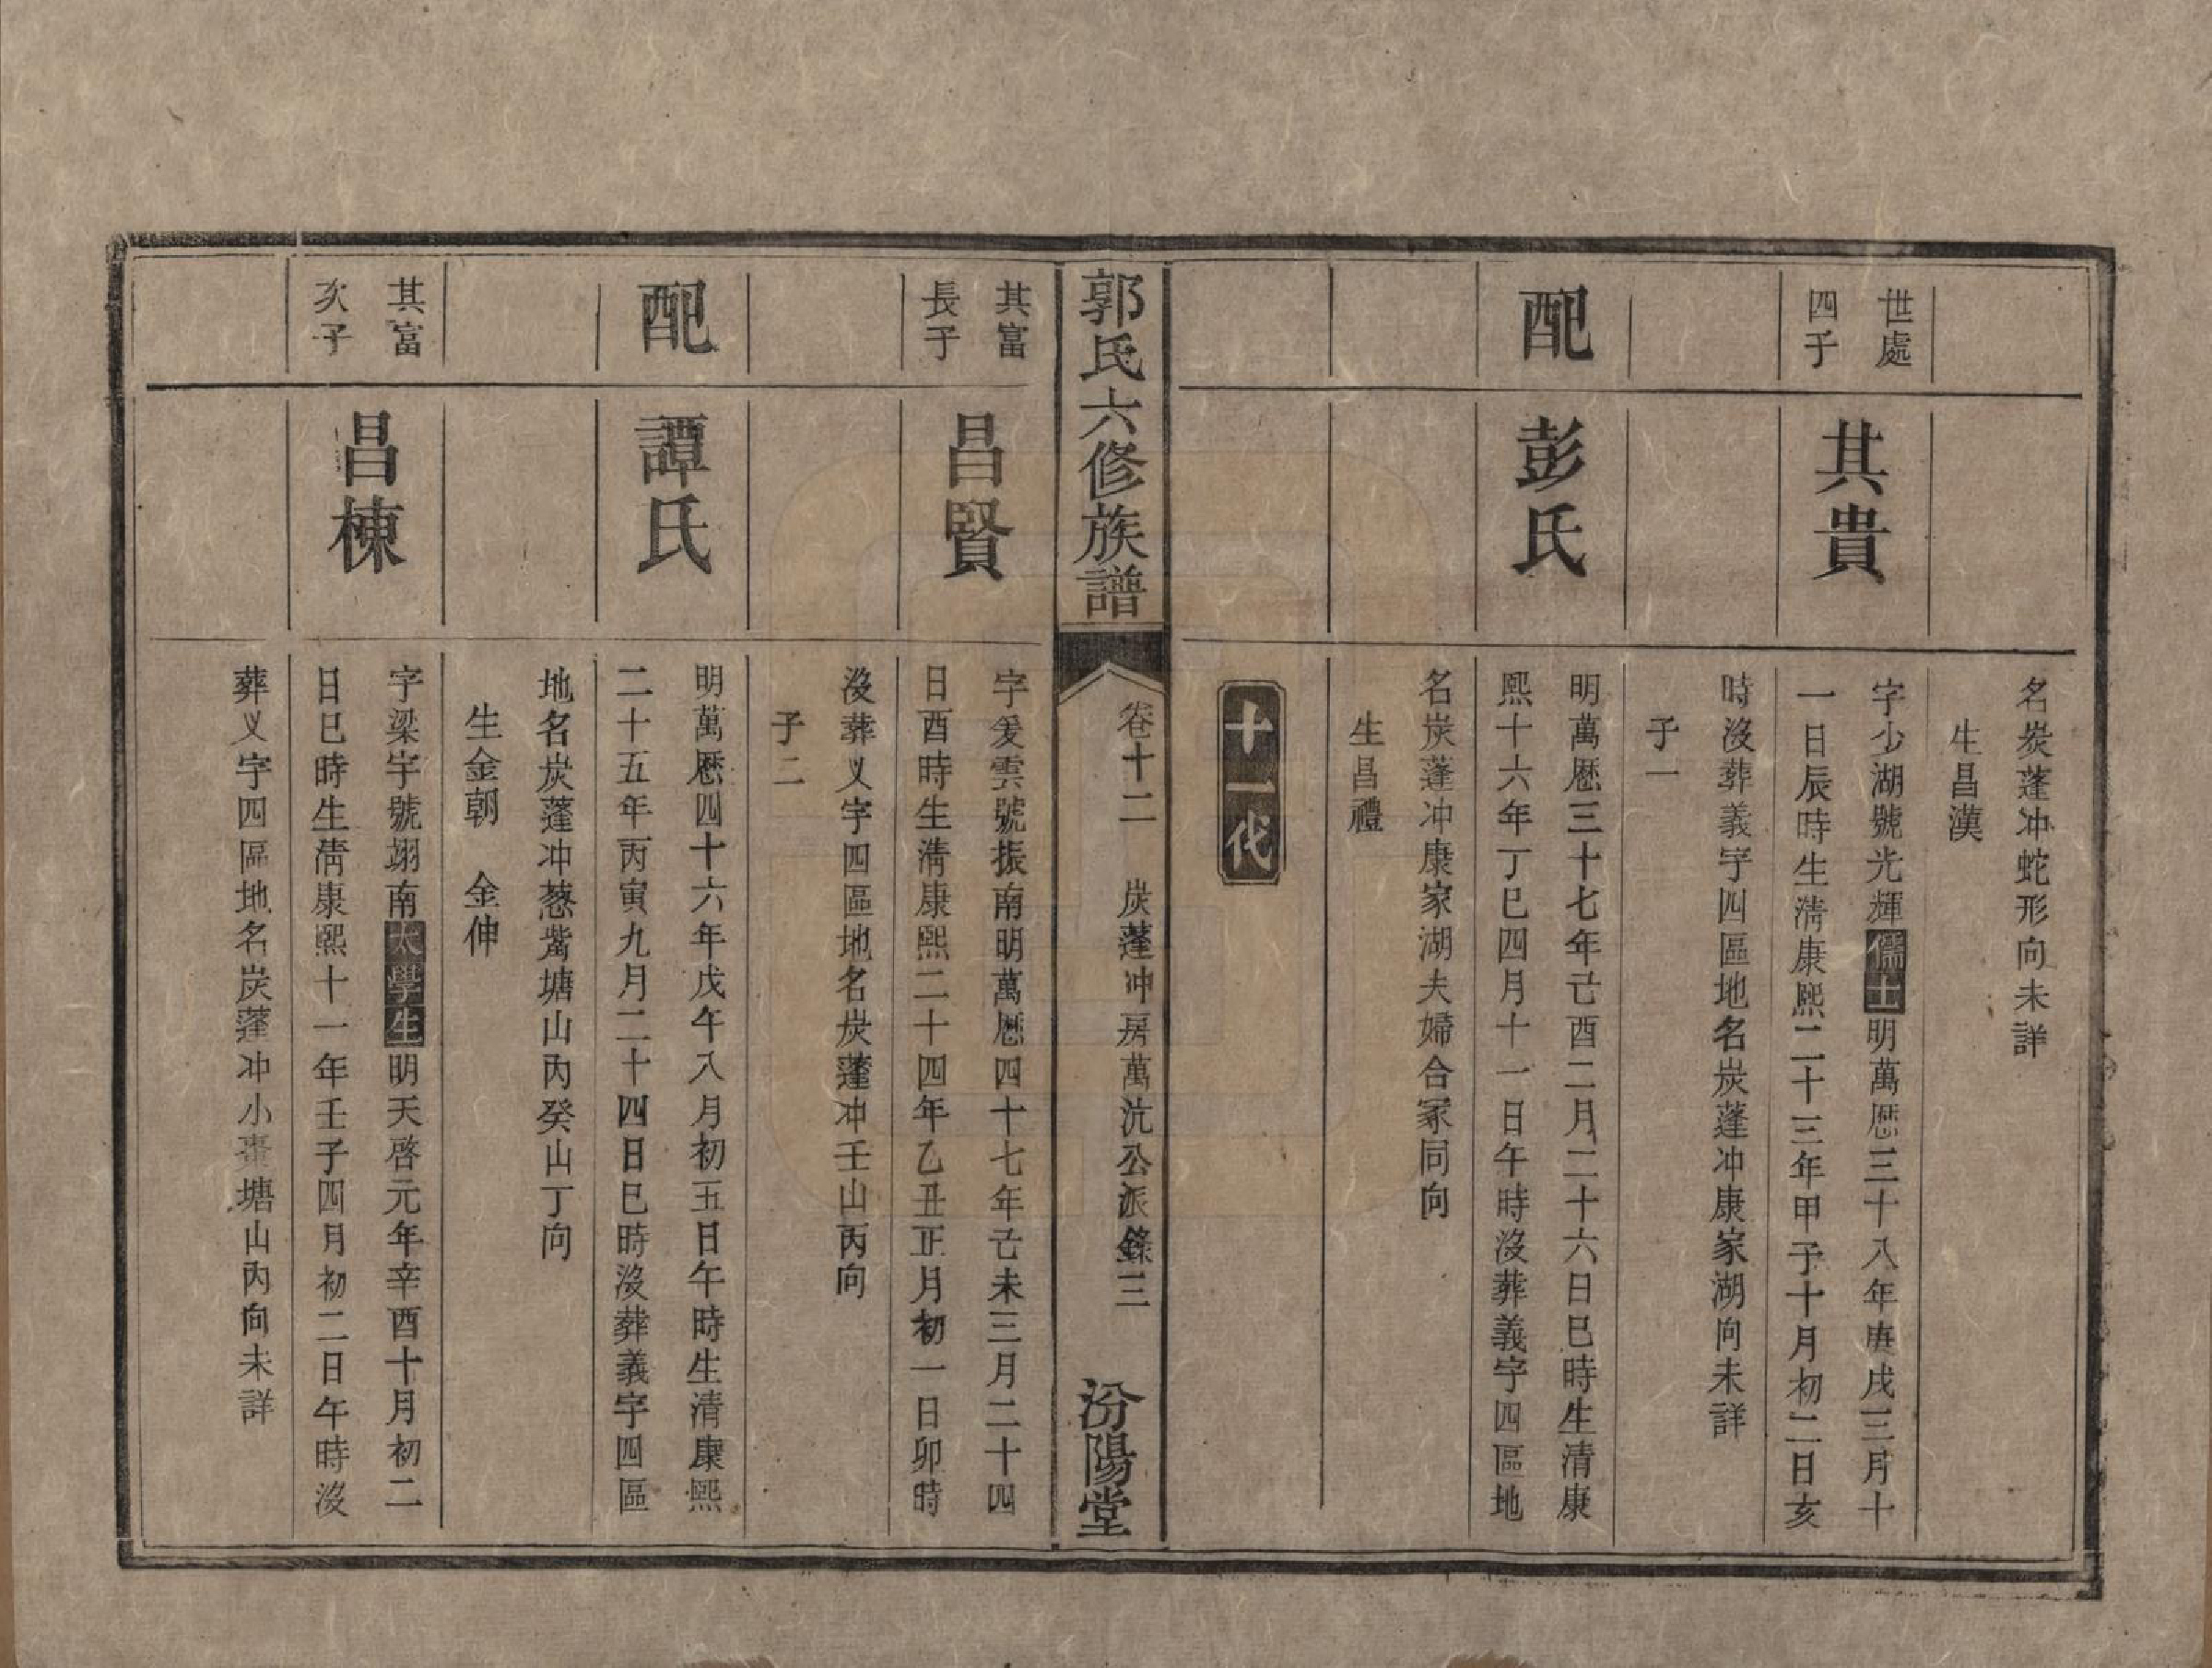 名炭蓬冲蛇形向未詳
生昌漢
世處
四子
其貴
字少湖號光輝儒士明萬厯三十八年庚戌三月十
一日辰時生清康熙二十三年甲子十月初二日亥
時沒葬義字四區地名炭蓬冲康家湖向未詳
子一
配
彭氏
明萬厯三十七年己酉二月二十六日巳時生清康
熙十六年丁巳四月十一日午時沒葬義字四區地
名炭蓬冲康家湖夫婦合冢同向
生昌禮
十一代
郭氏六修族譜
卷十二 炭蓬冲房萬沆公派錄三
汾陽堂
其富
長子
昌賢
字爰雲號振南明萬厯四十七年己未三月二十四
日酉時生清康熙二十四年乙丑正月初一日卯時
沒葬义字四區地名炭蓬冲壬山丙向
子二
配
譚氏
明萬厯四十六年戊午八月初五日午時生清康熙
二十五年丙寅九月二十四日巳時沒葬義字四區
地名炭蓬冲葱嵩塘山内癸山丁向
生金朝 金伸
其富
次子
昌棟
字梁宇號翊南太學生明天啓元年辛酉十月初二
日巳時生清康熙十一年壬子四月初二日午時沒
葬义字四區地名炭蓬冲小棗塘山内向未詳